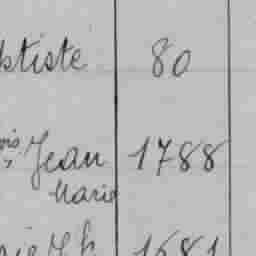 ptiste 80
ois Jean 1788
Marie
1681